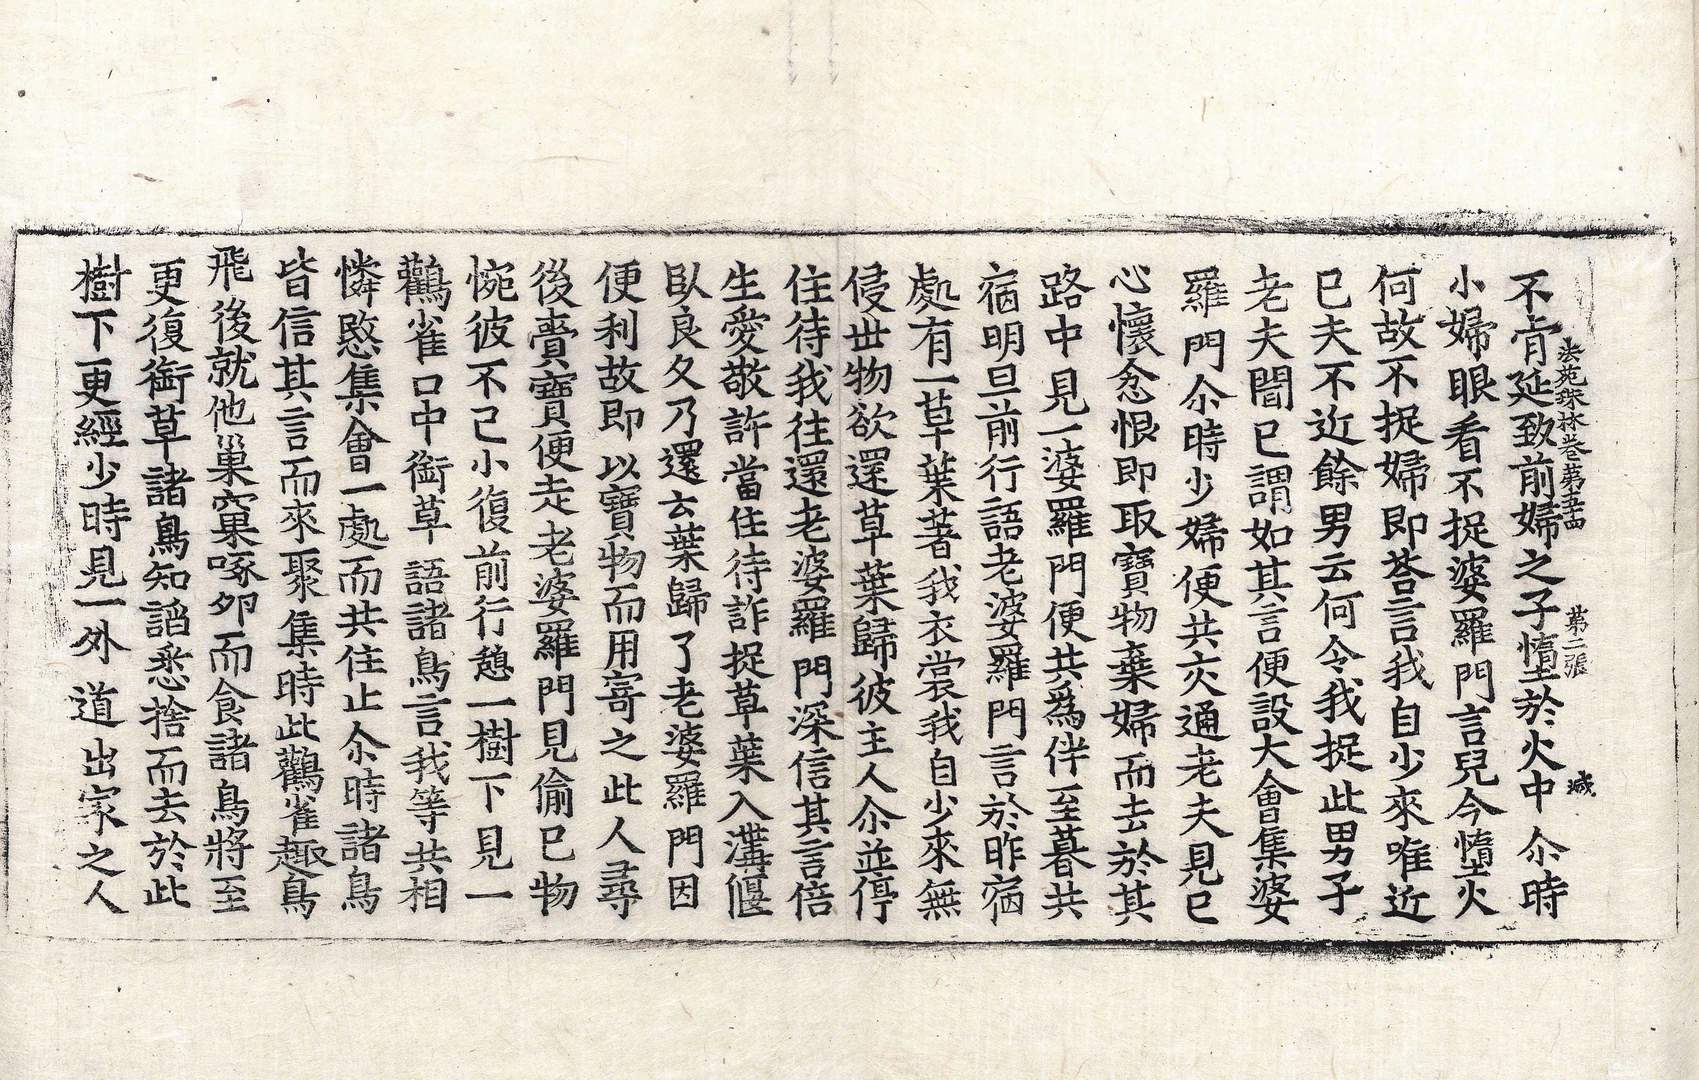 法苑珠林卷第五十四 第二張 滅
不肯延致前婦之子墮於火中尒時
小婦眼看不捉婆羅門言兒今墮火
何故不捉婦即荅言我自少來唯近
已夫不近餘男云何令我捉此男子
老夫聞已謂如其言便設大會集婆
羅門尒時少婦便共交通老夫見已
心懷忿恨即取寶物棄婦而去於其
路中見一婆羅門便共爲伴至暮共
宿明旦前行語老婆羅門言於昨宿
處有一草葉著我衣裳我自少來無
侵世物欲還草葉歸彼主人尒並停
住待我往還老婆羅門深信其言倍
生愛敬許當住待詐捉草葉入溝偃
臥良久乃還云葉歸了老婆羅門因
便利故即以寶物而用寄之此人尋
後賷寶便走老婆羅門見偷已物
惋彼不已小復前行憩一樹下見一
鸛雀口中銜草語諸鳥言我等共相
憐愍集會一處而共住止尒時諸鳥
皆信其言而來聚集時此鸛雀趣鳥
飛後就他巢窠啄卵而食諸鳥將至
更復銜草諸鳥知謟悉捨而去於此
樹下更經少時見一外道出家之人